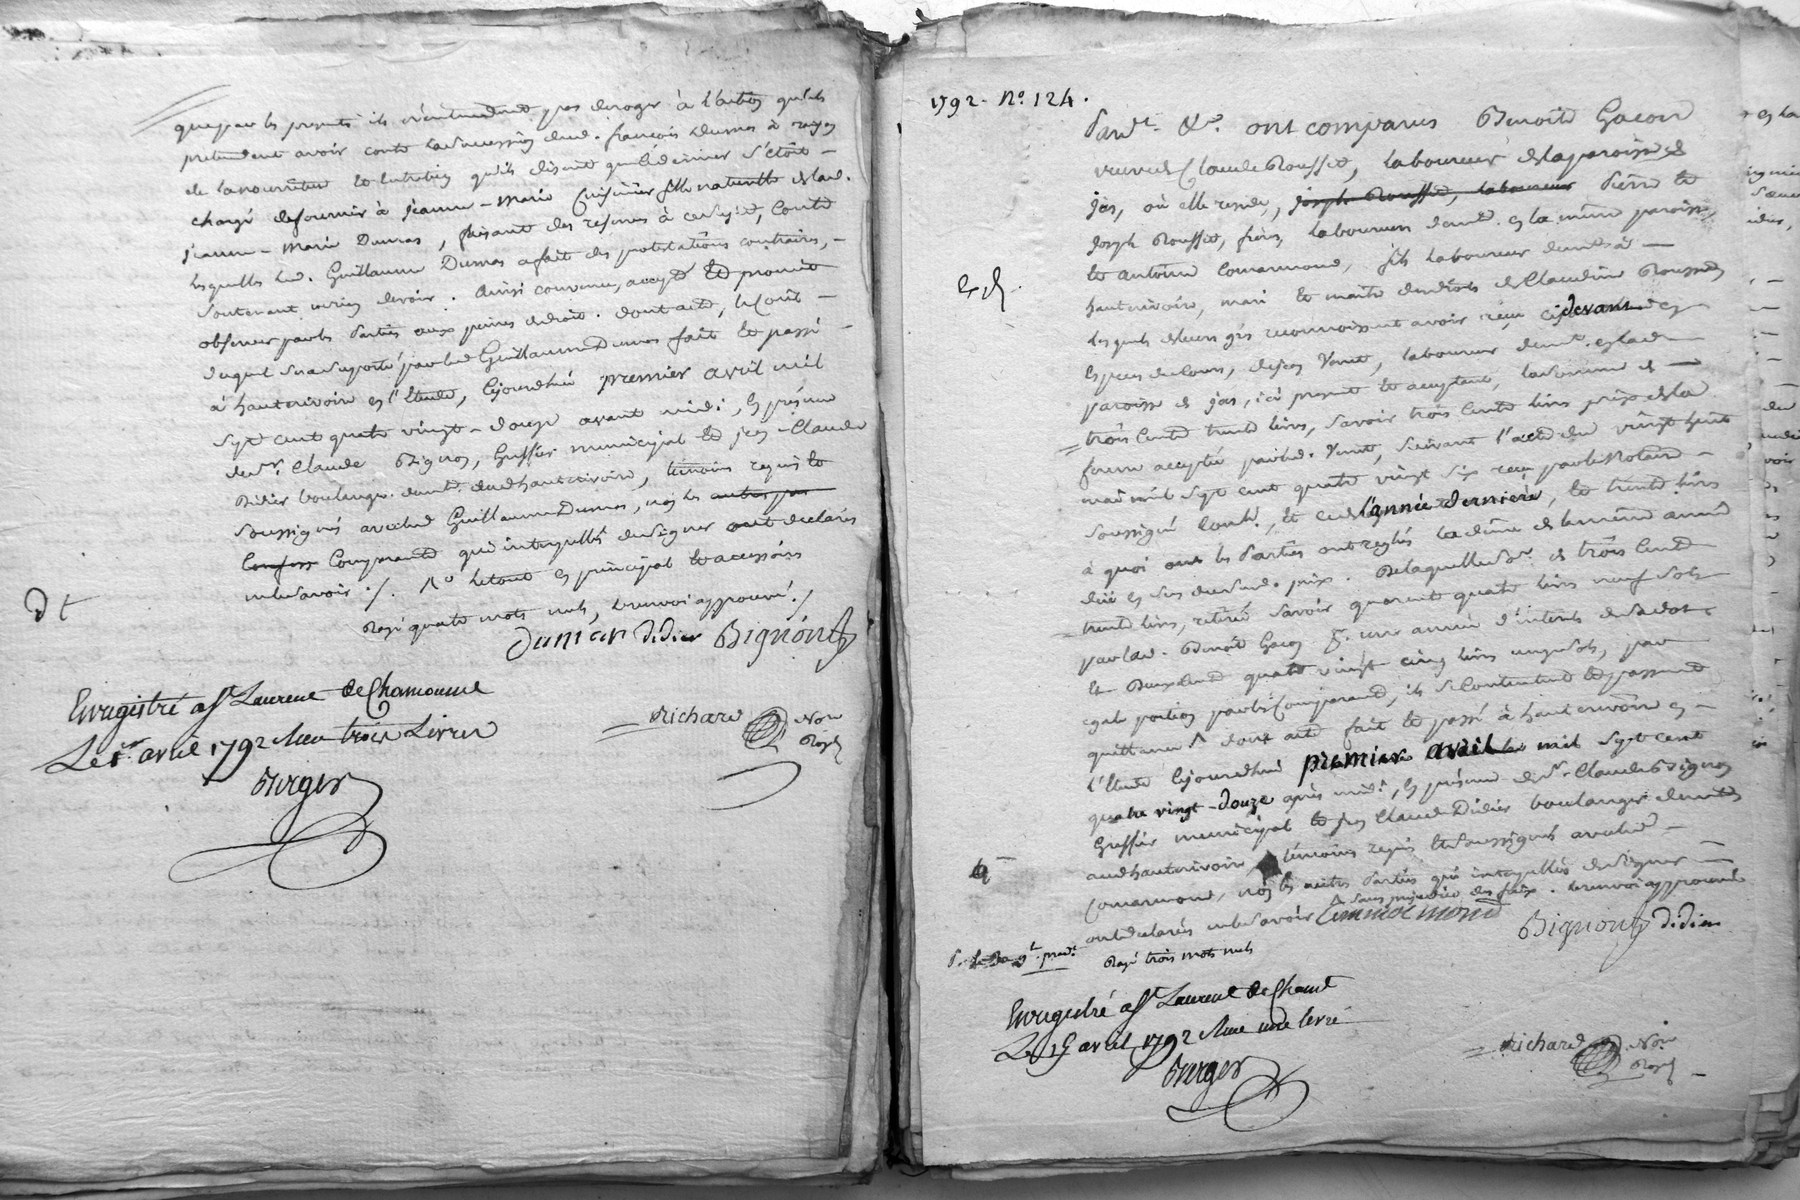 que par les presents ils n'entendent pas deroger à l'action qu'ils
pretendent avoir contre la succession dud. françois Dumas à raison
de la nourriture et entretien qu'ils disent que led dernier s'étoit
chargé de fournir à jeanne-marie Cuisinier fille naturelle de lad.
jeanne-marie Dumas, faisant des reserves à ce sujet, contre
lesquelles led. Guillaume Dumas a fait des protestations contraires,
soutenant ne rien devoir. Ainsi convenu, accepté et promis
observer par les parties aux peines de droit. dont acte, le coût
duquel sera suporté par led Guillaume Dumas fait et passé
à hauterivoire en l'Etude, cejourdhui premier avril mil
sept cent quatre vingt-douze avant midi, en présence
de sr. Claude Bignon, Greffier municipal et jean-Claude
Didier boulanger demt. aud hauterivoire, témoins requis et
soussignés avec led Guillaume Dumas, non les autres par
Comparants qui interpellés de signer ont declarés
ne le savoir ./. le tout en principal et accessoire
Rayé quatre mots nuls, le renvoi approuvé ./
Dumas Didier Bignon
Enregistré a St Laurent de Chamousset
Le 1er avril 1792 Reçu trois Livres
Berger
Richard Nore
Royal
1792. No. 124.
Pardt. &c. ont comparus Benoite Gacon
veuve de Claude Rousset, laboureur de la paroisse de
jas, où elle reside, joseph Rousset, laboureur Pierre et
Joseph Rousset, frères, laboureurs demt. en la même paroisse,
et antoine Comarmond, fils laboureur demt à
hauterivoire, mari et maitre des droits de Claudine Rousset
lesquels de leurs grés reconnoissent avoir reçu cidevant en
especes de cours, de jean Venet, laboureur demt. en lad
paroisse de jas, ici present et acceptant, la somme de
trois Cent trente livres, savoir trois Cent livres prix de la
ferme acceptée par led. Venet, suivant l'acte du vingt huit
mai mil sept cent quatre vingt six reçu par le Notaire
soussigné Contr., et ce de l'année derniere, et trente livres
à quoi les Parties ont reglés la dime de la meme année
düe en sus dud. prix. De laquelle se. de trois Cent
trente livres, retirée savoir quarente quatre livres neuf sols
par lad. Benoite Gacon pr. une année d'interet de sa dot
et Deux cent quatre vingt cinq livres onze sols, par
egale portion par les Comparants, ils se contentent et passent
quittance dont acte fait et passé à hauterivoire en
l'Etude cejourdhui premier avril mil sept cent
quatre vingt-douze après midi, en présence de sr. Claude Bignon
Greffier municipal et jean Claude Didier boulanger demt
aud hauterivoire témoins requis et soussignés avec led
Comarmond, non les autres Parties qui interpellés de signer
ont declarés ne le savoir sans préjudice des frais. le renvoi approuvé
Comarmond
Bignon Didier
Rayé trois mots nuls
Enregistré a St Laurent de Chamt
Le 15 avril 1792 Reçu une livre
Berger
Richard Nore
Royal